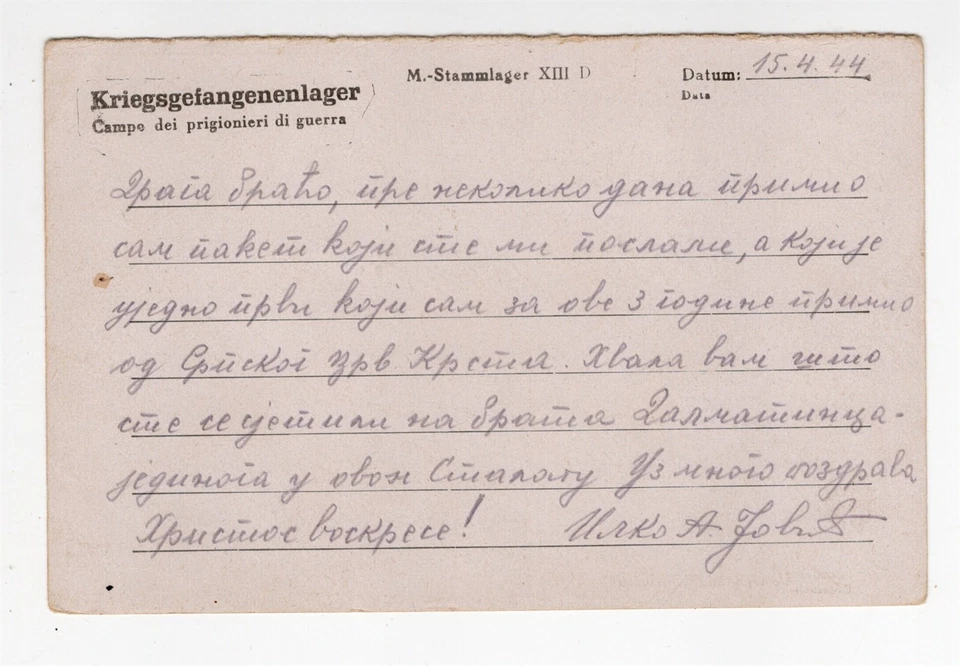 Kriegsgefangenenlager
Campo dei prigionieri di guerra
M.-Stammlager XIII D
Datum: 15.4.44
Data
Драга браћо, пре неколико дана примио
сам пакет који сте ми послали, а који је
уједно први који сам за ове 3 године примио
од Српског Црв. Крста. Хвала вам што
сте се сјетили на брата Далматинца-
јединога у овом Сталагу Уз много поздрава
Христос воскресе! Илко А.